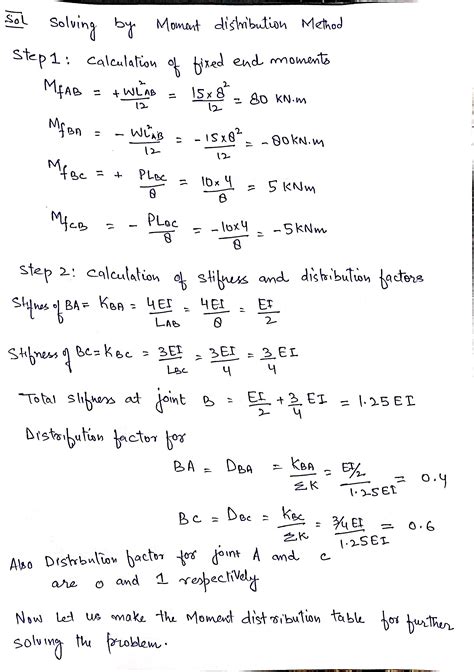 Sol Solving by Moment distribution Method
Step 1: Calculation of fixed end moments
MfAB = +WL²AB/12 = 15×8²/12 = 80 KN.m
MfBA = -WL²AB/12 = -15×8²/12 = -80KN.m
MfBC = + PLBC/8 = 10×4/8 = 5 KNm
MfCB = - PLBC/8 = -10×4/8 = -5KNm
Step 2: Calculation of stifness and distribution factors
Stifnes of BA = KBA = 4EI/LAB = 4EI/8 = EI/2
Stifness of BC = KBC = 3EI/LBC = 3EI/4 = 3/4 EI
Total stifness at joint B = EI/2 + 3/4 EI = 1.25EI
Distribution factor for
BA = DBA = KBA/ΣK = EI/2/1.25EI = 0.4
BC = DBC = KBC/ΣK = 3/4EI/1.25EI = 0.6
Also Distrbution factor for joint A and C
are 0 and 1 respectively
Now let us make the Moment distribution table for further
solving the problem.